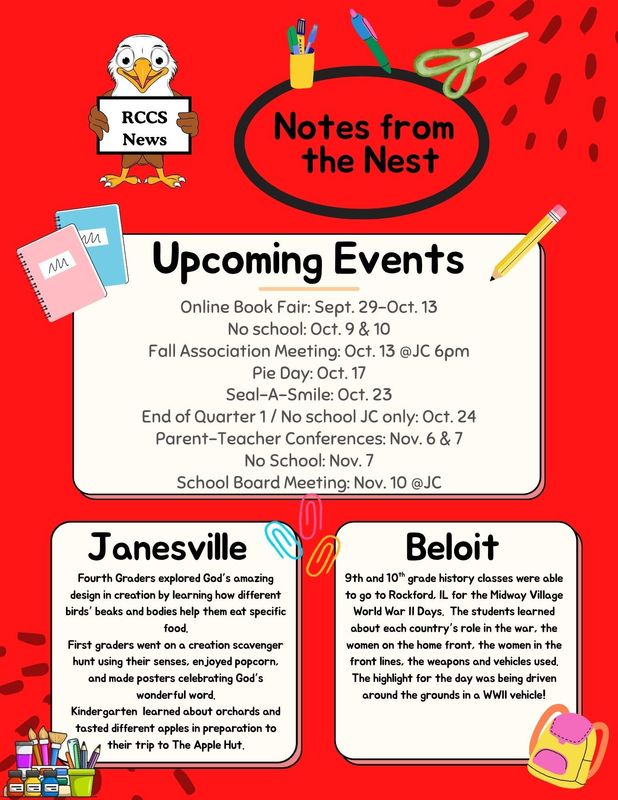 RCCS
News
Notes from
the Nest
Upcoming Events
Online Book Fair: Sept. 29-Oct. 13
No school: Oct. 9 & 10
Fall Association Meeting: Oct. 13 @JC 6pm
Pie Day: Oct. 17
Seal-A-Smile: Oct. 23
End of Quarter 1 / No school JC only: Oct. 24
Parent-Teacher Conferences: Nov. 6 & 7
No School: Nov. 7
School Board Meeting: Nov. 10 @JC
Janesville
Fourth Graders explored God's amazing
design in creation by learning how different
birds' beaks and bodies help them eat specific
food.
First graders went on a creation scavenger
hunt using their senses, enjoyed popcorn,
and made posters celebrating God's
wonderful word.
Kindergarten learned about orchards and
tasted different apples in preparation to
their trip to The Apple Hut.
Beloit
9th and 10th grade history classes were able
to go to Rockford, IL for the Midway Village
World War II Days. The students learned
about each country's role in the war, the
women on the home front, the women in the
front lines, the weapons and vehicles used.
The highlight for the day was being driven
around the grounds in a WWII vehicle!